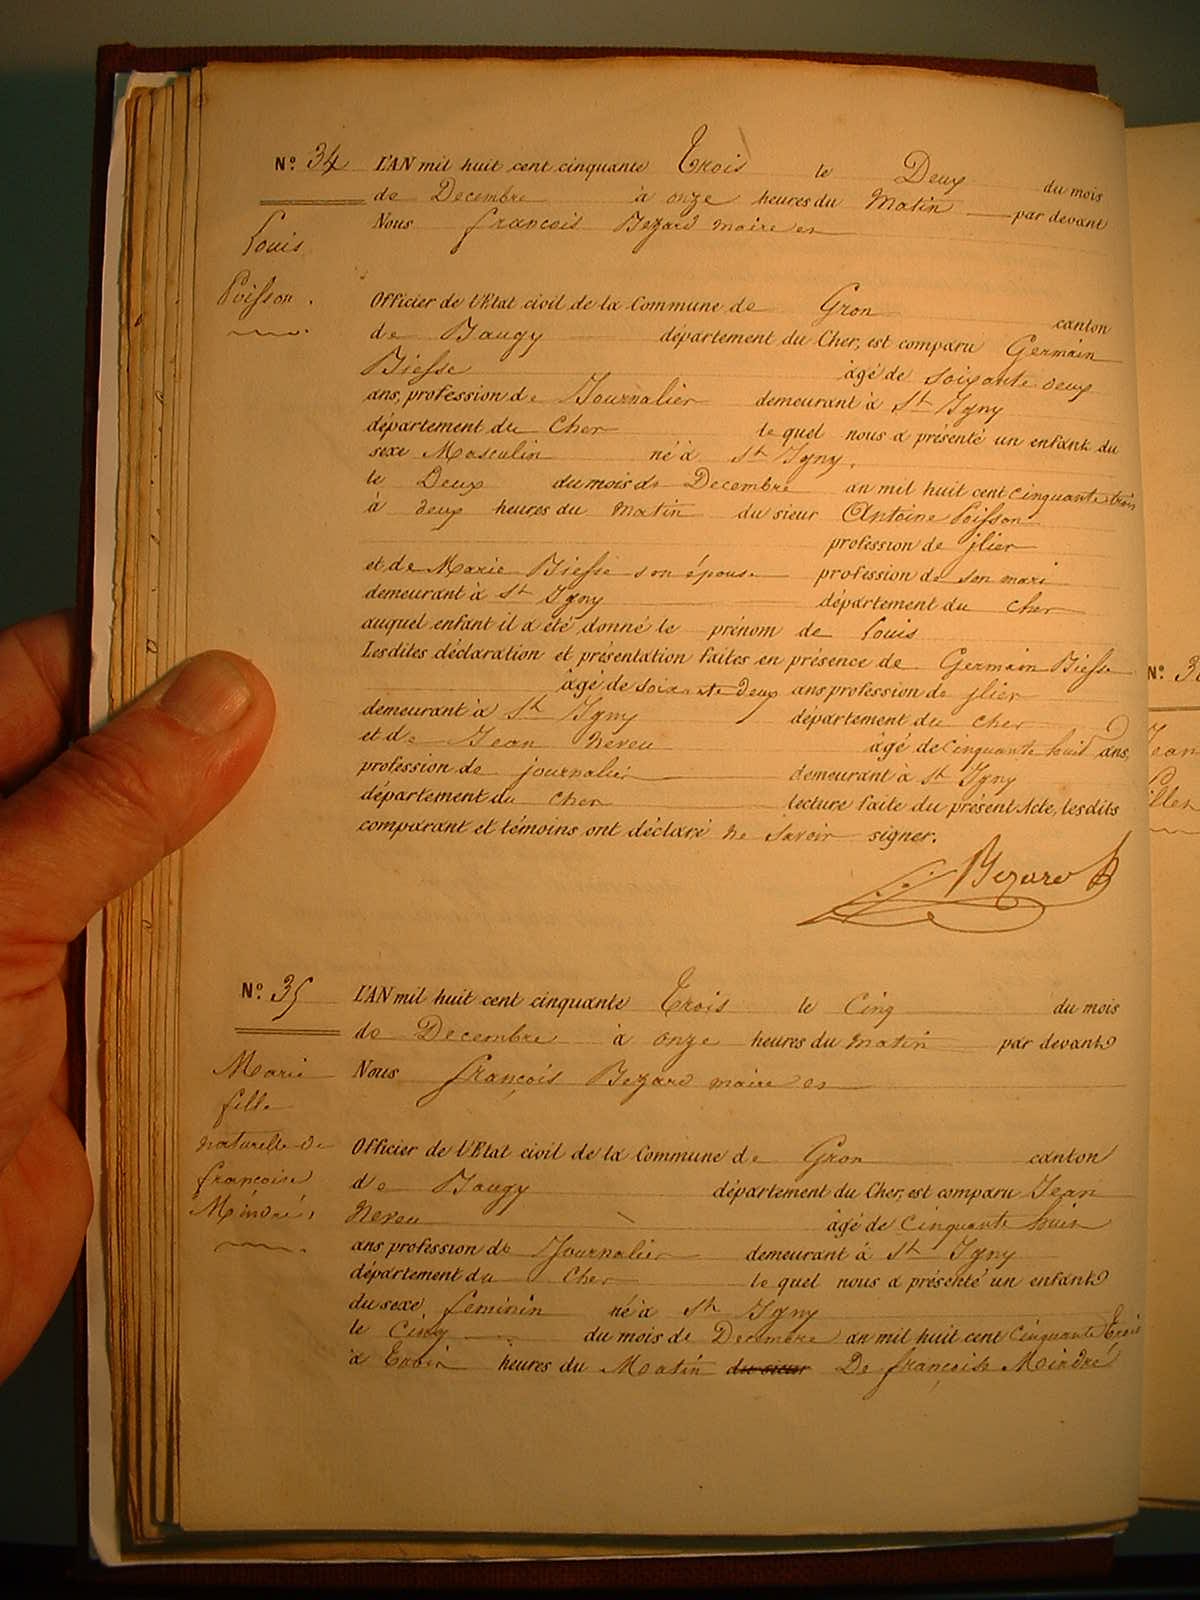 N° 34 L'AN mil huit cent cinquante Trois le Deux du mois
de Decembre à onze heures du Matin par devant
Nous francois Bezard maire et
Louis
Poisson.
Officier de l'Etat civil de la Commune de Gron canton
de Baugy département du Cher, est comparu Germain
Biesse âgé de Soixante deux
ans, profession de Journalier demeurant à St Igny
département du Cher le quel nous a présenté un enfant du
sexe Masculin né à St Igny.
le Deux du mois de Decembre an mil huit cent cinquante trois
à deux heures du Matin du sieur Antoine Poisson
profession de jlier
et de Marie Biesse son épouse profession de son mari
demeurant à St Igny département du Cher
auquel enfant il a été donné le prénom de Louis
Lesdites déclaration et présentation faites en présence de Germain Biesse
âgé de soixante deux ans profession de jlier
demeurant à St Igny département du Cher
et de Jean Neveu âgé de cinquante huit ans,
profession de journalier demeurant à St Igny
département du Cher lecture faite du présent Acte, lesdits
comparant et témoins ont déclaré ne Savoir signer.
Bezard
N° 35 L'AN mil huit cent cinquante Trois le Cinq du mois
de Decembre à onze heures du matin par devant
Nous françois Bezard maire et
Marie
fille
naturelle de
francoise
Meindré,
Officier de l'Etat civil de la Commune de Gron canton
de Baugy département du Cher, est comparu Jean
Neveu âgé de Cinquante huit
ans profession de Journalier demeurant à St Igny
département du Cher le quel nous a présenté un enfant
du sexe feminin né à St Igny
le Cinq du mois de Decembre an mil huit cent Cinquante Trois
à Trois heures du Matin du sieur De françoise Meindré
N° 3
Jean